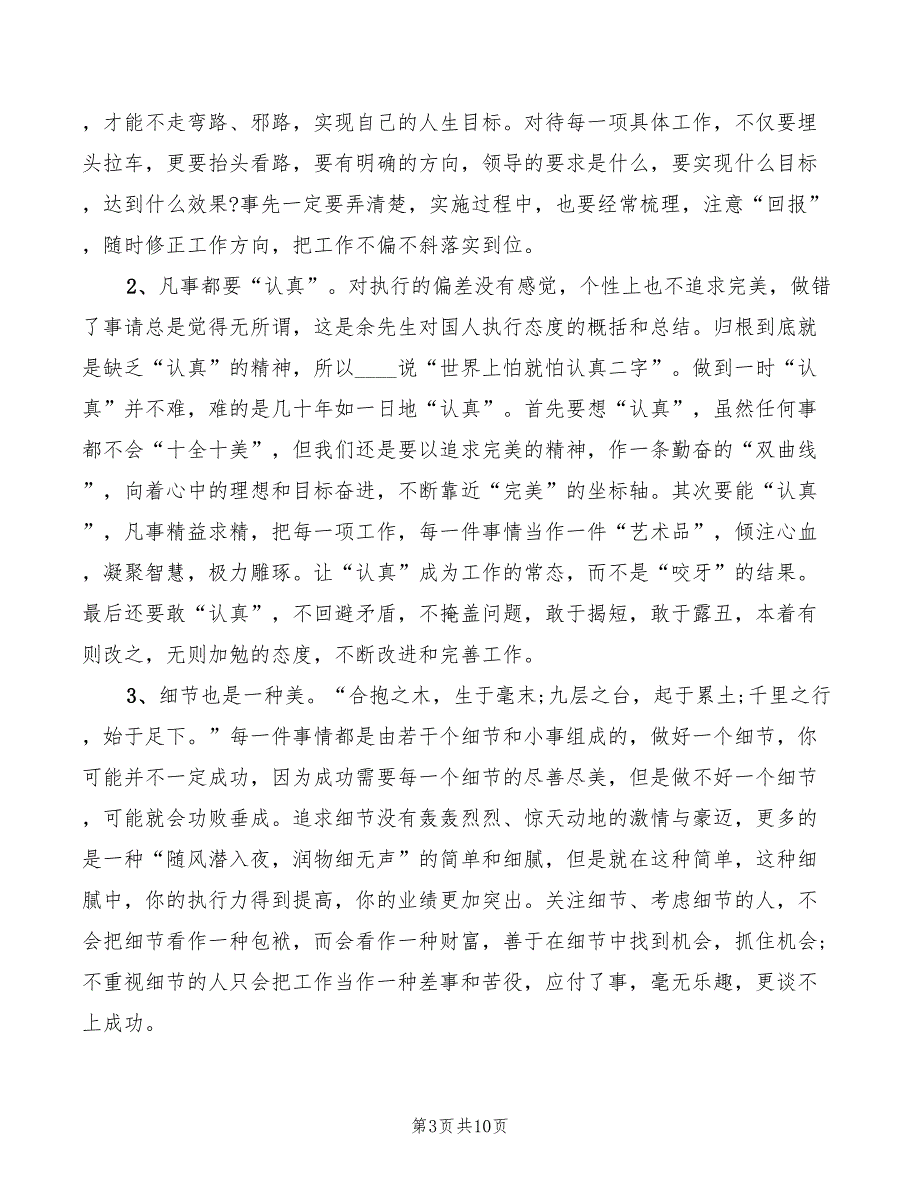 ，才能不走弯路、邪路，实现自己的人生目标。对待每一项具体工作，不仅要埋
头拉车，更要抬头看路，要有明确的方向，领导的要求是什么，要实现什么目标
，达到什么效果?事先一定要弄清楚，实施过程中，也要经常梳理，注意“回报”
，随时修正工作方向，把工作不偏不斜落实到位。
2、凡事都要“认真”。对执行的偏差没有感觉，个性上也不追求完美，做错
了事请总是觉得无所谓，这是余先生对国人执行态度的概括和总结。归根到底就
是缺乏“认真”的精神，所以____说“世界上怕就怕认真二字”。做到一时“认
真”并不难，难的是几十年如一日地“认真”。首先要想“认真”，虽然任何事
都不会“十全十美”，但我们还是要以追求完美的精神，作一条勤奋的“双曲线
”，向着心中的理想和目标奋进，不断靠近“完美”的坐标轴。其次要能“认真
”，凡事精益求精，把每一项工作，每一件事情当作一件“艺术品”，倾注心血
，凝聚智慧，极力雕琢。让“认真”成为工作的常态，而不是“咬牙”的结果。
最后还要敢“认真”，不回避矛盾，不掩盖问题，敢于揭短，敢于露丑，本着有
则改之，无则加勉的态度，不断改进和完善工作。
3、细节也是一种美。“合抱之木，生于毫末;九层之台，起于累土;千里之行
，始于足下。”每一件事情都是由若干个细节和小事组成的，做好一个细节，你
可能并不一定成功，因为成功需要每一个细节的尽善尽美，但是做不好一个细节
，可能就会功败垂成。追求细节没有轰轰烈烈、惊天动地的激情与豪迈，更多的
是一种“随风潜入夜，润物细无声”的简单和细腻，但是就在这种简单，这种细
腻中，你的执行力得到提高，你的业绩更加突出。关注细节、考虑细节的人，不
会把细节看作一种包袱，而会看作一种财富，善于在细节中找到机会，抓住机会;
不重视细节的人只会把工作当作一种差事和苦役，应付了事，毫无乐趣，更谈不
上成功。
第3页共10页